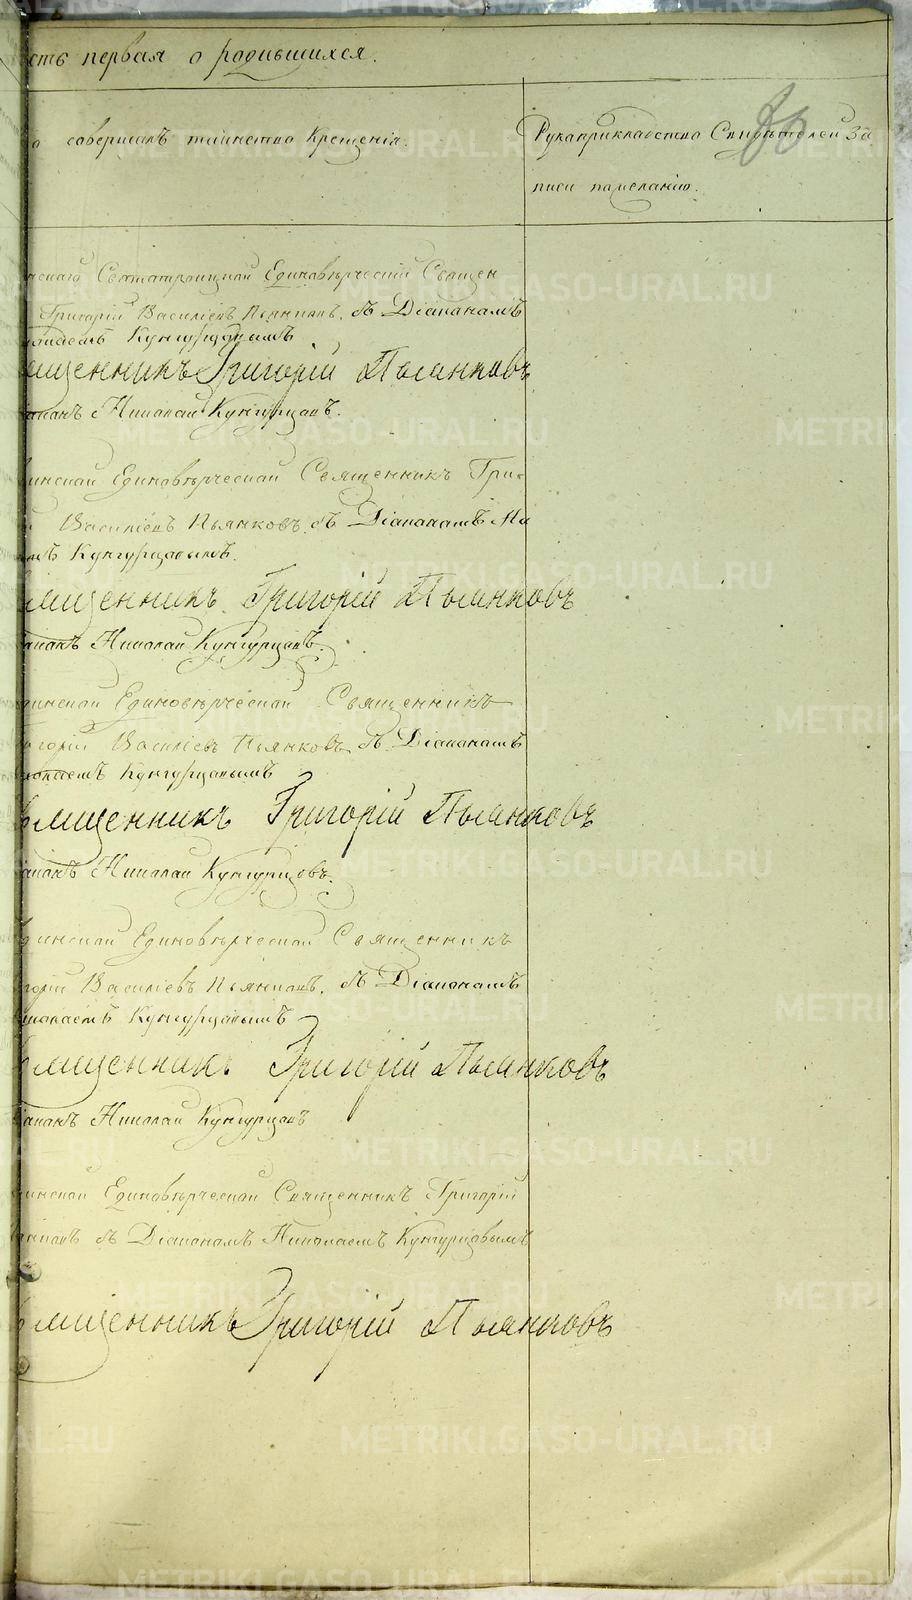 сть первая о родившихся.
о совершалъ таинство Крещенія.
Рукоприкладство Свидѣтелей за
писи по желанію.
Святотроицкой Единовѣрческій Священ
Григорій Василіевъ Пьянковъ, съ Діакономъ
Кунгурцовымъ
щенникъ Григорій Пьянковъ
іаконъ Николай Кунгурцовъ.
инской Единовѣрческой Священникъ Григо
Василіевъ Пьянковъ, съ Діакономъ Ни
мъ Кунгурцовымъ.
щенникъ Григорій Пьянковъ
іаконъ Николай Кунгурцовъ.
инской Единовѣрческой Священникъ
игорій Василіевъ Пьянковъ, съ Діакономъ
колаемъ Кунгурцовымъ
вященникъ Григорій Пьянковъ
іаконъ Николай Кунгурцовъ.
инской Единовѣрческой Священникъ
горій Василіевъ Пьянковъ, съ Діакономъ
иколаемъ Кунгурцовымъ
вященникъ Григорій Пьянковъ
іаконъ Николай Кунгурцовъ
инской Единовѣрческой Священникъ Григорій
съ Діакономъ Николаемъ Кунгурцовымъ
вященникъ Григорій Пьянковъ
METRIKI.GASO-URAL.RU